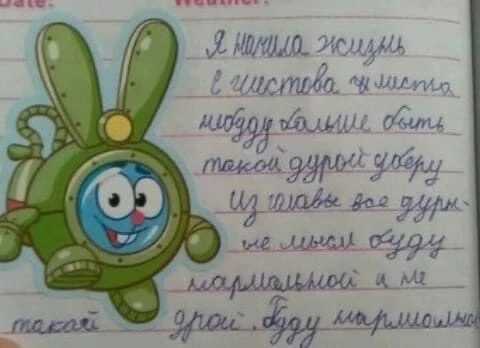 Date: Weather:
Я начила жизнь
с чистова чиста
небуду больше быть
такой дурой уберу
из главы все дуры-
не мысл буду
нармальной и не
такай дрой. Буду нармиолной